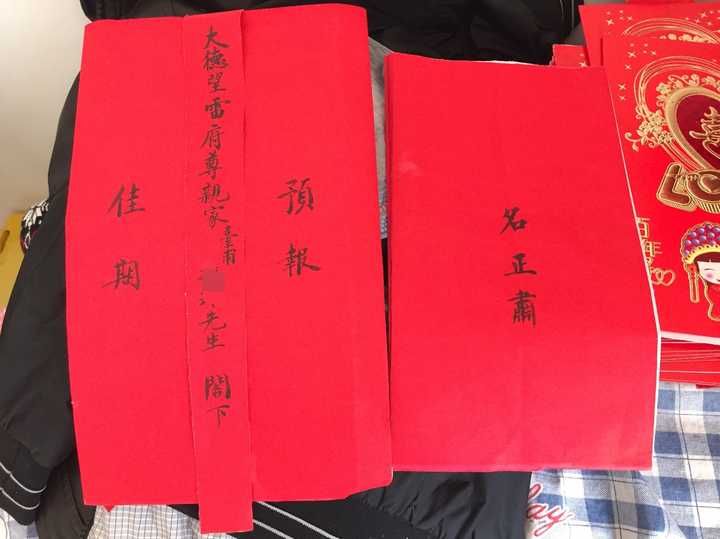 預報
大德望雷府尊親家臺甫 先生 閣下
佳期
名正肅
百年